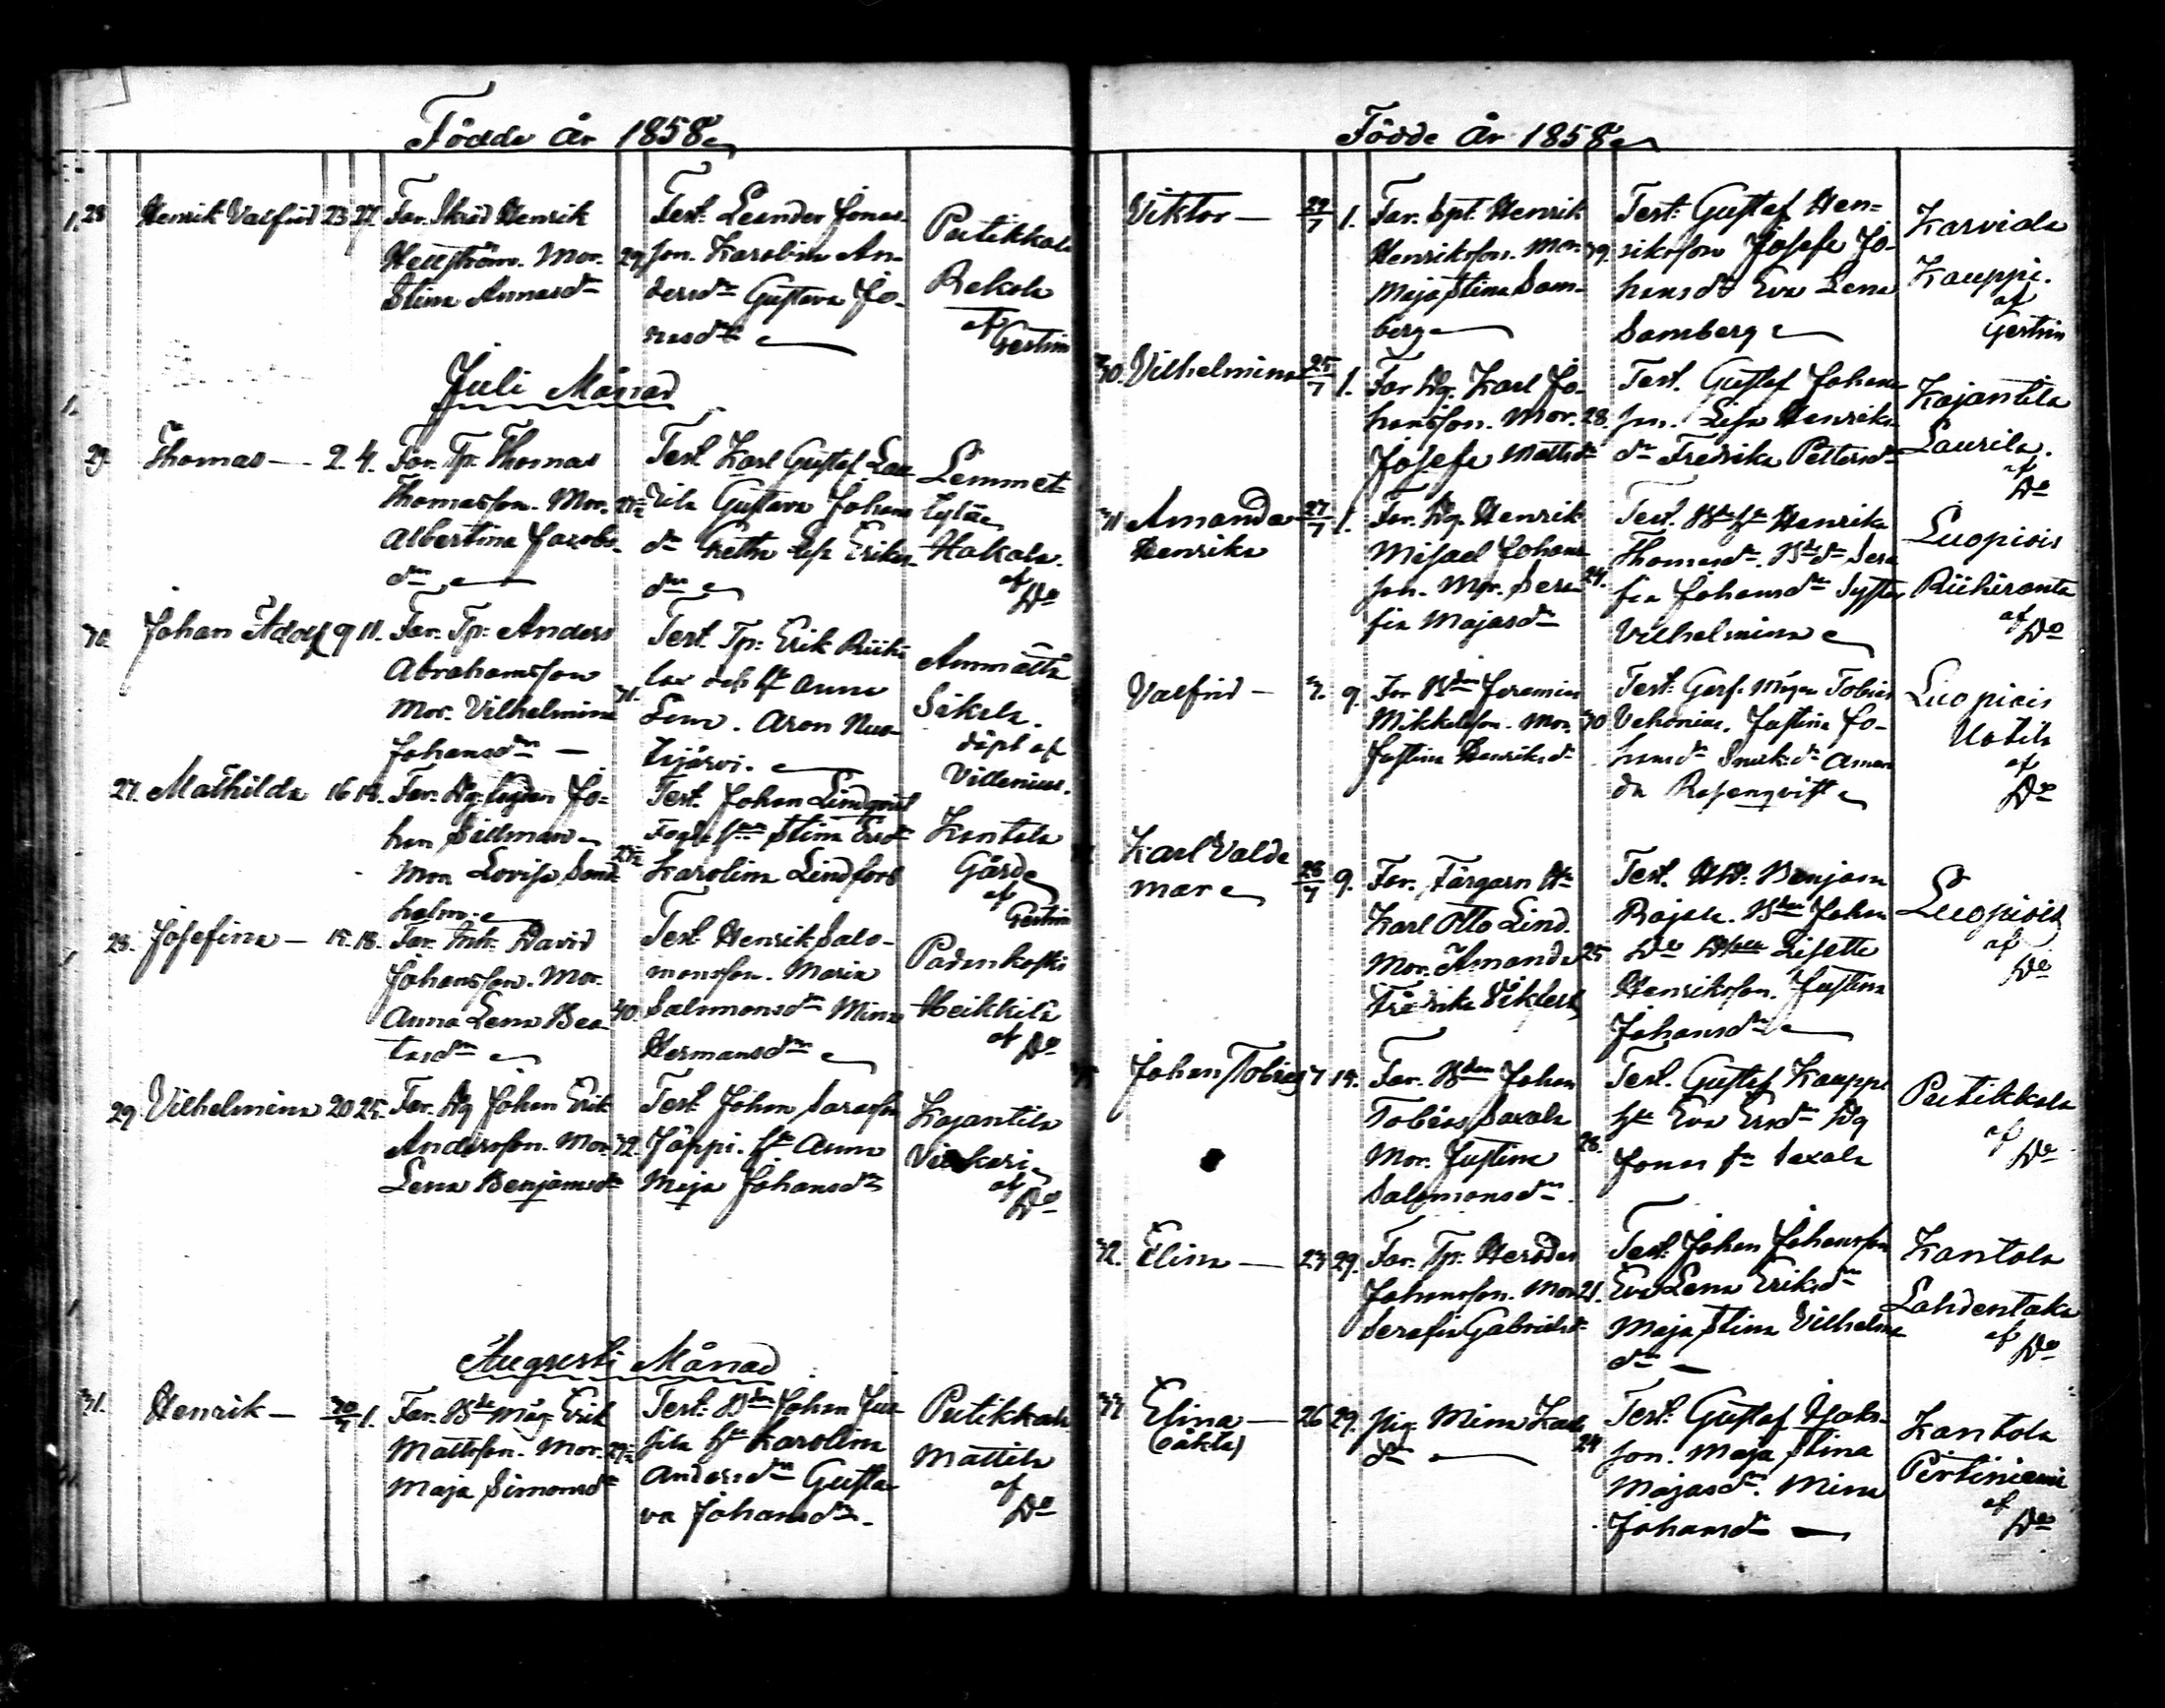 Födde År 1858
28 Henrik Valfrid 23 27. Far. Skräd Henrik
Hellström. Mor. 29
Stina Annasdr
Test. Leander Jonas-
son. Karolina An-
dersdr Gustava Jo-
nasdr
Putikkala
Rekola
af
Gestrin
Juli Månad
29. Thomas 2. 4. Far. Tp. Thomas
Thomasson. Mor.
Albertina Jacobs-
dr
Test. Karl Gustaf Lau
rila Gustava Johans
dr Greta Lisa Eriks-
dr
Lemmet-
tylä
Hakala.
af
Do
30. Johan Adolf 9 11. Far. Tp. Anders
Abrahamsson 31.
Mor. Vilhelmina
Johansdr
Test. Tp. Erik Riiki
lax och h. Anna
Lena. Aron Nus-
tijärvi.
Ammättä
Sikala.
döpt af
Villenius.
27. Mathilda 16 18. Far.
han Sillman
Mor. Lovisa Sand
holm.
Test. Johan Lindqvist
Stina Ersdr
Karolina Lindfors
Kantola
Gård
af
Gestrin
28. Josefina 15. 18. Far. Inh. David
Johansson. Mor.
Anna Lena Bea- 40.
tasdr
Test. Henrik Salo-
monsson. Maria
Salomonsdr Mina
Hermansdr
Padankoski
Heikkilä
af
Do
29. Vilhelmina 20 25. Far. Dg Johan Erik
Andersson. Mor. 32.
Lena Benjamsdr
Test. Johan Sarasson
Jäppi. h. Anna
Maja Johansdr
Kajantila
af
Do
Augusti Månad
31. Henrik 30/7 1. Far. Bde Måg Erik
Mattsson. Mor.
Maja Simonsdr
Test. Bden Johan Jus
sila hu Karolina
Andersdr Gusta-
va Johansdr.
Putikkala
Mattila
af
Do
Födde År 1858
Viktor 29/7 1. Far. Spt. Henrik
Henriksson. Mor. 39.
Maja Stina Sam-
berg
Test. Gustaf Hen-
riksson Josefa Jo-
hansdr Eva Lena
Samberg
Karviala
Kauppi.
af
Gestrin
30. Vilhelmina 25/7 1. Far Dg. Karl Jo-
hansson. Mor. 28.
Josefa Mattsdr
Test. Gustaf Johans
son. Lisa Henriks
dr Fredrika Pettersdr
Kajantila
Laurila.
af
Do
31 Amanda 27/7 1. Far. Dg. Henrik
Henrika
Misael Johans
son. Mor. Sera- 24.
fia Majasdr
Test. Henrika
Thomasdr. Sera
fia Johansdr
Vilhelmina
Luopiois
Riihiranta
af
Do
Valfrid 3. 9. Far Bden Jeremias
Mikkelsson. Mor. 30
Justina Henriksdr
Test. Tobias
Vehonius. Justina Jo-
hansdr Aman
da Rosenqvist
Luopiois
Uotila
af
Do
Karl Valde
mar 28/7 9. Far. Färgarn
Karl Otto Lind.
Mor. Amanda 25
Fredrika
Test. Benjam
Rajala. Bden Johan
Do Lisette
Henriksson. Justina
Johansdr
Luopiois
af
Do
Johan Tobias 7 15. Far. Bden Johan
Tobias Saxala
Mor. Justina 28.
Salomonsdr.
Test. Gustaf Kauppi
hu Eva Ersdr Dg
Jonas Saxala
Putikkala
af
Do
32. Elina 23 29. Far. Tp. Herodes
Johansson. Mor 21.
Serafia Gabrielsdr
Test. Johan Johansson
Eva Lena Eriksdr
Maja Stina Vilhelms
dr
Kantola
Lahdentaka
af
Do
33 Elina 26 29. Pig. Mina Karls
(oäkta)
dr 24
Test. Gustaf Isaks-
son. Maja Stina
Majasdr. Mina
Johansdr
Kantola
Pirttiniemi
af
Do